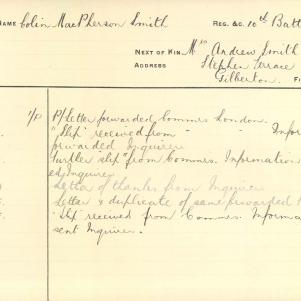 NAME Colin MacPherson Smith REG. &C. 10th Batt
NEXT OF KIN Mrs Andrew Smith
ADDRESS Stephen Terrace
Gilberton.
1/P P/Letter forwarded Commrs London.
"Slip" received from " Infor
forwarded Inquirer
Further "slip" from Commrs. Information
ed Inquirer
Letter of thanks from Inquirer
Letter & duplicate of same forwarded
"Slip" received from Commrs. Informa
sent Inquirer.